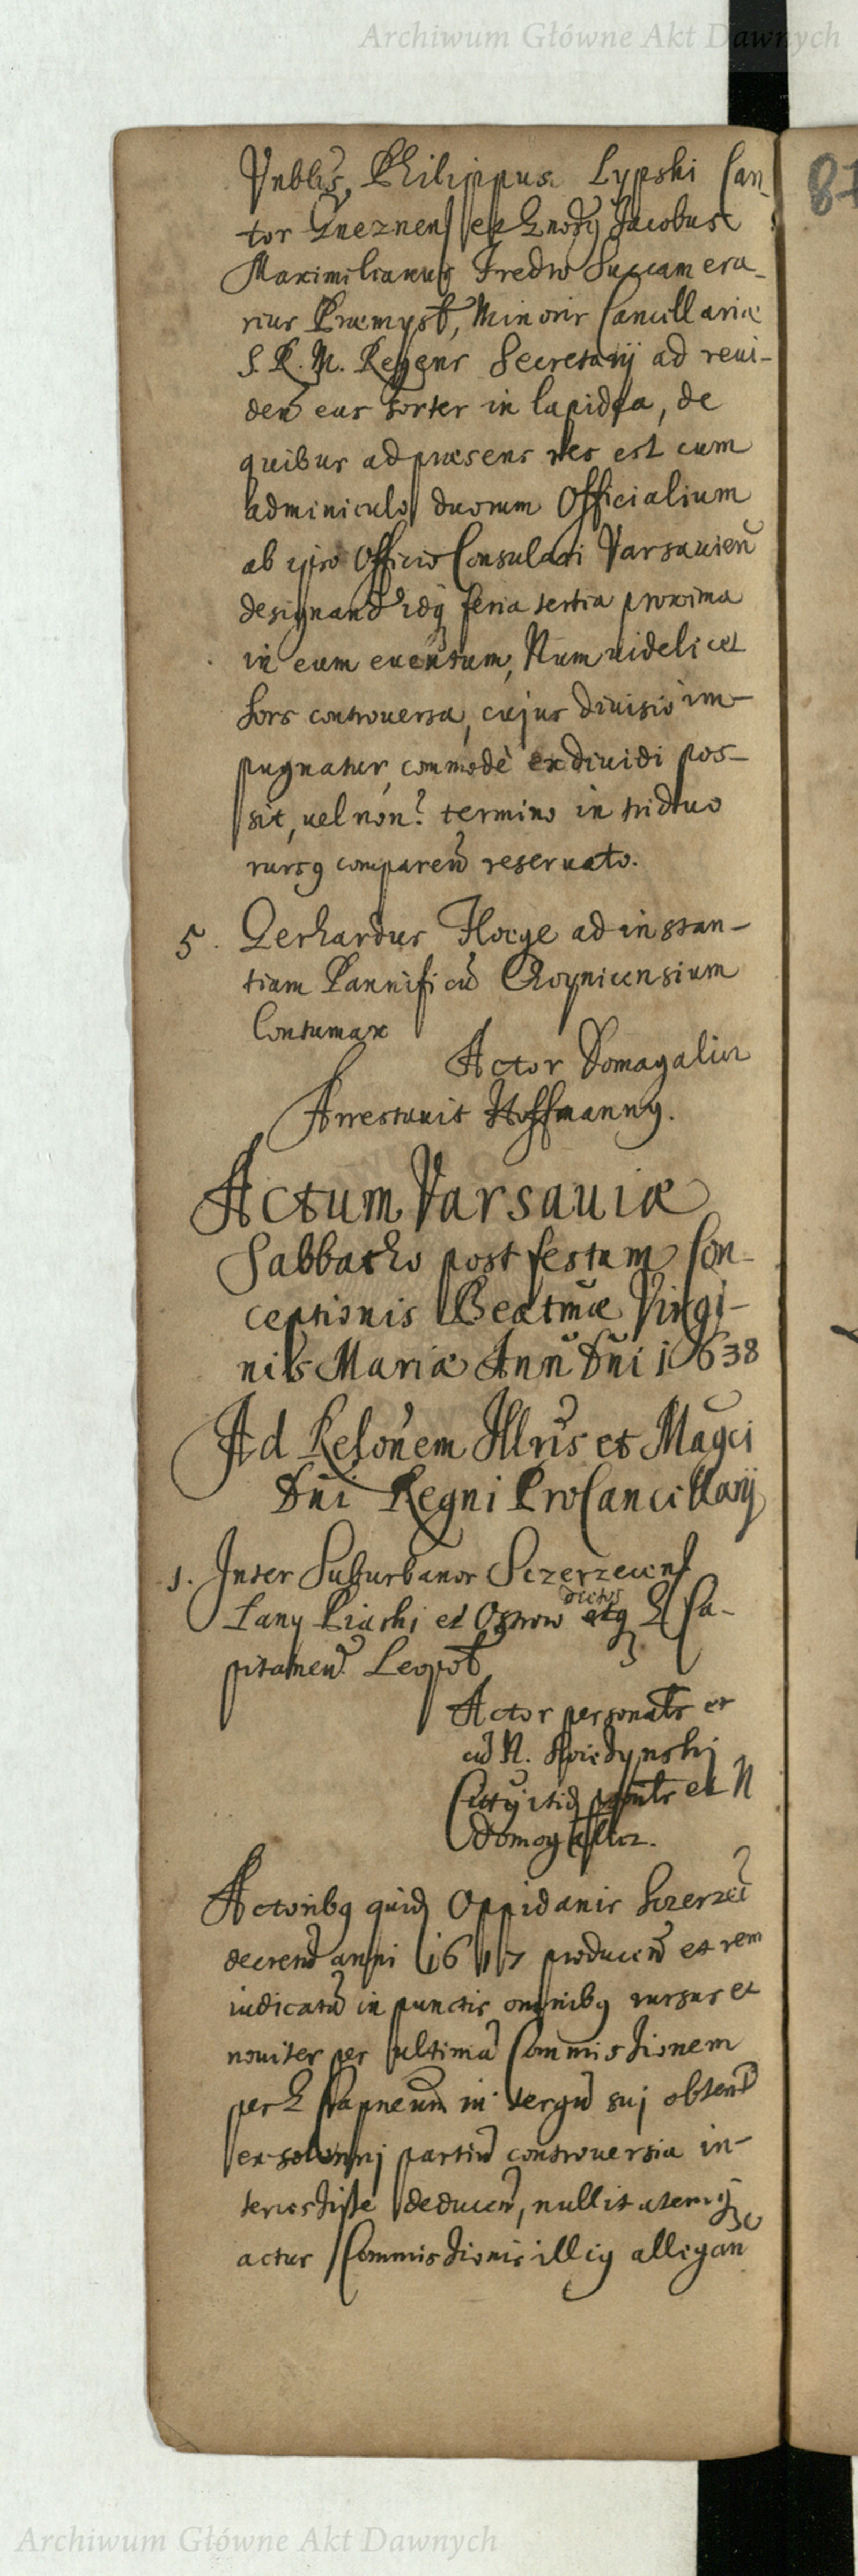 Archiwum Główne Akt Dawnych
Vnblis Philippus Lypski Can-
tor Gneznen et Gnosus Jacobus
Maximilianus Fredro Succamera-
rius Præmysl, Minoris Cancellariæ
S. R. M. Regens Secretarij ad reui-
den eas sortes in lapidea, de
quibus ad præsens res est cum
adminiculo duorum Officialium
ab ipso Officio Consulari Varsauien
designand idq feria tertia proxima
in eum euentum, Num uidelicet
sors controuersa, cujus diuisio im-
pugnatur, commodè exdiuidi pos-
sit, uel non? termino in triduo
rursq comparen reseruato.
5. Gerhardus Hoege ad instan-
tiam Pannificu Choynicensium
Contumax
Actor Domagalicz
Arrestauit Hoffmanny.
Actum Varsauiæ
Sabbatho post festum Con-
ceptionis Beatmæ Virgi-
nis Mariæ Ann Dni 1638
Ad Relonem Illris et Magci
Dni Regni ProCancellarij
1. Inter Suburbanos Sczerzecens
dictos
Lany Piaski et Ostrow atq G Ca-
pitaneu Leopol
Actor personalr et
cu N.
Citti itid psonlr et N
Domogallicz.
Actoribq quid Oppidanis Sczerzec
decretu anni 1617 producen et rem
iudicata in punctis omnibq rursus et
nouiter per ultima Commissionem
per G Capneum in tergu sui obtent
ex solenni partiu controuersia in-
teriectisse deducen, nullitatemq
actus Commissionis illiq allegan
87
Archiwum Główne Akt Dawnych